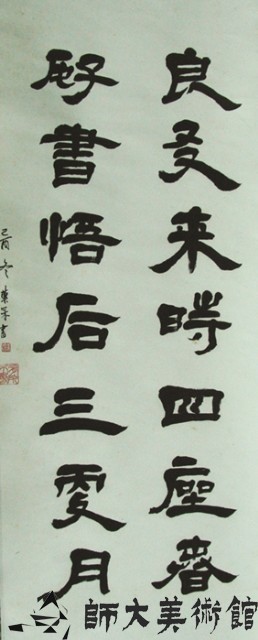 良友来時四座春
好書悟后三更月
己酉冬
師大美術館